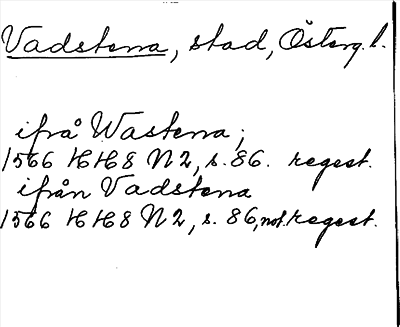 Vadstena, stad, Österg. l.
ifrå Wastena;
1566 HH8 N2, s. 86. regest.
ifrån Vadstena
1566 HH8 N2, s. 86, not. regest.